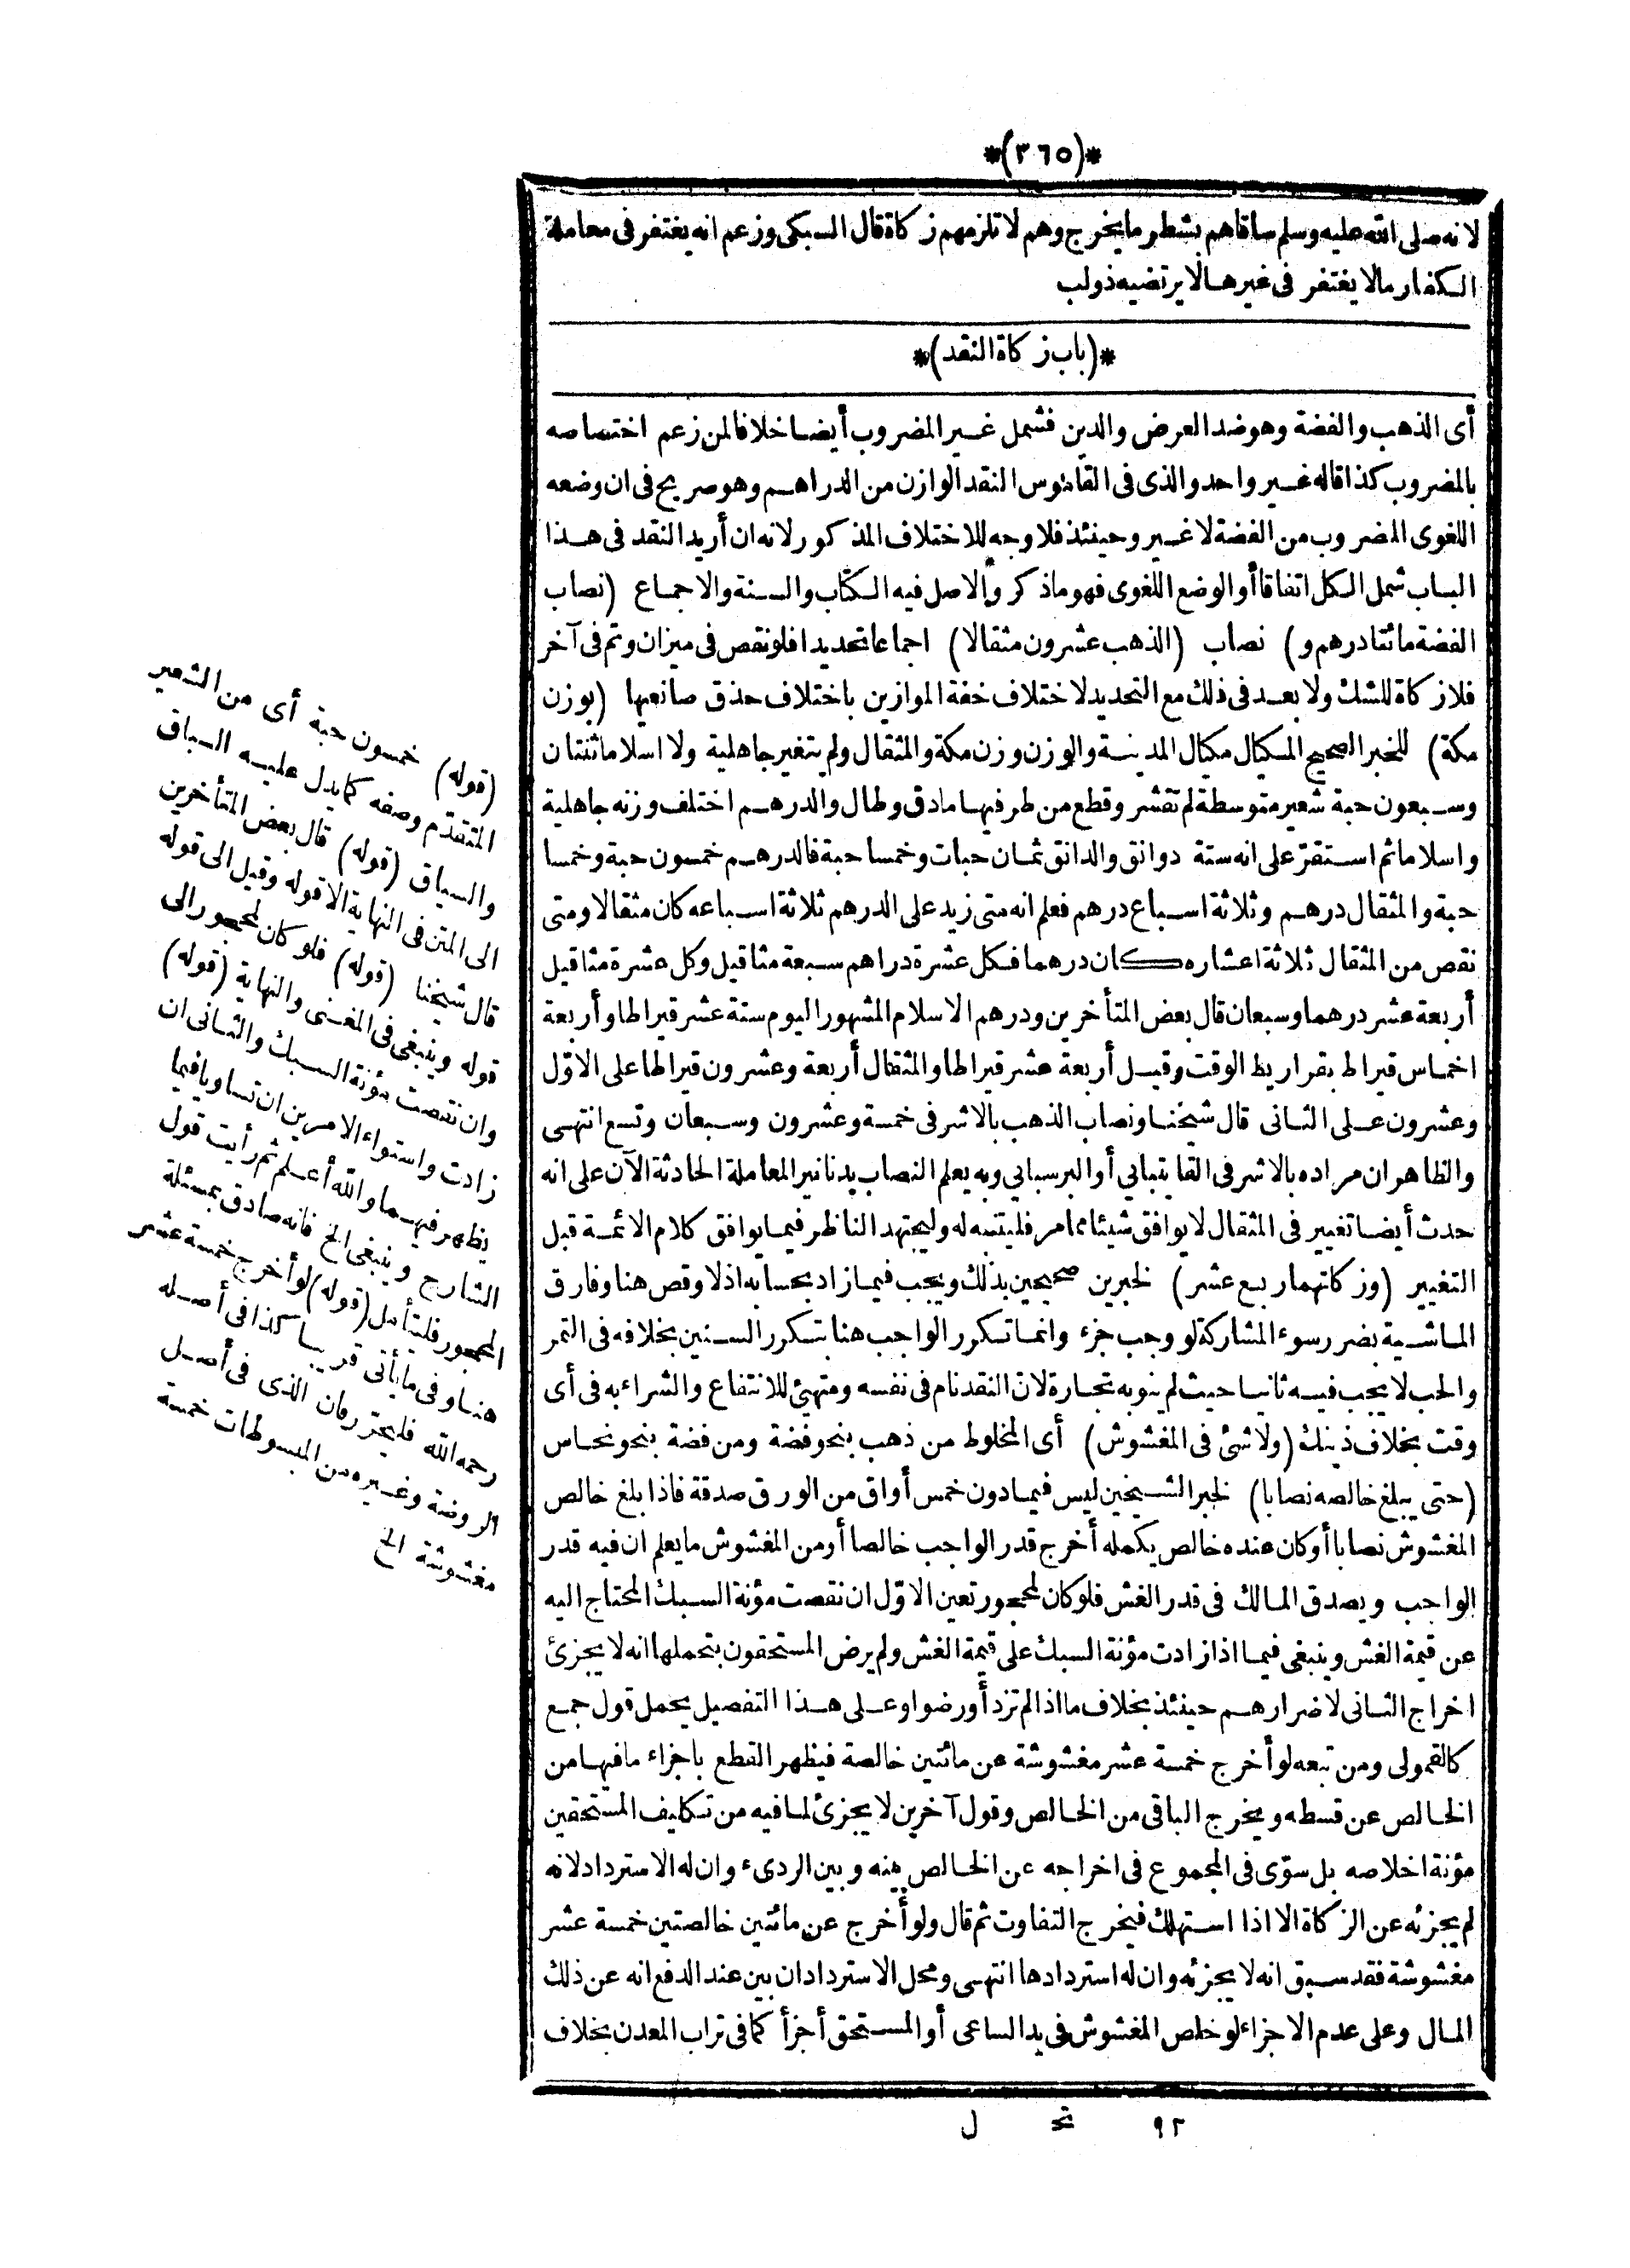 *(٣٦٥)*
لانه صلى الله عليه وسلم ساقاهم بشطر ما يخرج وهم لا تلزمهم زكاة قال السبكى وزعم انه يغتفر فى معاملة
الكفار مالا يغتفر فى غيرها لا يرتضيه ذولب
*(باب زكاة النقد)*
أى الذهب والفضة وهو ضد العرض والدين فشمل غير المضروب أيضا خلافا لمن زعم اختصاصه
بالمضروب كذا قاله غير واحد والذى فى القاموس النقد الوازن من الدراهم وهو صريح فى ان وضعه
اللغوى المضروب من الفضة لا غير وحينئذ فلا وجه للاختلاف المذكور لانه ان أريد النقد فى هذا
الباب شمل الكل اتفاقا أو الوضع اللغوى فهو ماذكر والاصل فيه الكتاب والسنة والاجماع (نصاب
الفضة مائتا درهم و) نصاب (الذهب عشرون مثقالا) اجماعا تحديدا فلو نقص فى ميزان وتم فى آخر
فلا زكاة للشك ولا بعد فى ذلك مع التحديد لاختلاف خفة الموازين باختلاف حذق صانعيها (بوزن
مكة) للخبر الصحيح المكيال مكيال المدينة والوزن وزن مكة والمثقال ولم يتغير جاهلية ولا اسلاما ثنتان
وسبعون حبة شعير متوسطة لم تقشر وقطع من طرفيها مادق وطال والدرهم اختلف وزنه جاهلية
واسلاما ثم استقرّ على انه ستة دوانق والدانق ثمان حبات وخمسا حبة فالدرهم خمسون حبة وخمسا
حبة والمثقال درهم وثلاثة اسباع درهم فعلم انه متى زيد على الدرهم ثلاثة اسباعه كان مثقالا ومتى
نقص من المثقال ثلاثة اعشاره كان درهما فكل عشرة دراهم سبعة مثاقيل وكل عشرة مثاقيل
أربعة عشر درهما وسبعان قال بعض المتأخرين ودرهم الاسلام المشهور اليوم ستة عشر قيراطا وأربعة
اخماس قيراط بقراريط الوقت وقيل أربعة عشر قيراطا والمثقال أربعة وعشرون قيراطا على الاوّل
وعشرون على الثانى قال شيخنا ونصاب الذهب بالاشرفى خمسة وعشرون وسبعان وتسع انتهى
والظاهر ان مراده بالاشرفى القايتبايى أو البرسبايى وبه يعلم النصاب بدنانير المعاملة الحادثة الآن على انه
حدث أيضا تغيير فى المثقال لا يوافق شيئا مما مر فليتنبه له وليجتهد الناظر فيما يوافق كلام الائمة قبل
التغيير (وزكاتهما ربع عشر) لخبرين صحيحين بذلك ويجب فيما زاد بحسابه اذ لا وقص هنا وفارق
الماشية بضرر سوء المشاركة لو وجب جزء وانما تكرر الواجب هنا بتكرر السنين بخلافه فى التمر
والحب لا يجب فيه ثانيا حيث لم ينو به تجارة لان النقد نام فى نفسه ومتهيئ للانتفاع والشراء به فى أى
وقت بخلاف ذينك (ولا شئ فى المغشوش) أى المخلوط من ذهب بنحو فضة ومن فضة بنحو نحاس
(حتى يبلغ خالصه نصابا) لخبر الشيخين ليس فيما دون خمس أواق من الورق صدقة فاذا بلغ خالص
المغشوش نصابا أو كان عنده خالص يكمله أخرج قدر الواجب خالصا أو من المغشوش ما يعلم ان فيه قدر
الواجب ويصدق المالك فى قدر الغش فلو كان لمحجور تعين الاوّل ان نقصت مؤنة السبك المحتاج اليه
عن قيمة الغش وينبغى فيما اذا زادت مؤنة السبك على قيمة الغش ولم يرض المستحقون بتحملها انه لا يجزئ
اخراج الثانى لاضرارهم حينئذ بخلاف ما اذا لم تزد أو رضوا وعلى هذا التفصيل يحمل قول جمع
كالقمولى ومن تبعه لو أخرج خمسة عشر مغشوشة عن مائتين خالصة فيظهر القطع باجزاء مافيها من
الخالص عن قسطه ويخرج الباقى من الخالص وقول آخرين لا يجزئ لما فيه من تكليف المستحقين
مؤنة اخلاصه بل سوّى فى المجموع فى اخراجه عن الخالص بينه وبين الردىء وان له الاسترداد لانه
لم يجزئه عن الزكاة الا اذا استهلك فيخرج التفاوت ثم قال ولو أخرج عن مائتين خالصتين خمسة عشر
مغشوشة فقد سبق انه لا يجزئه وان له استردادها انتهى ومحل الاسترداد ان بين عند الدفع انه عن ذلك
المال وعلى عدم الاجزاء لو خلص المغشوش فى يد الساعى أو المستحق أجزأ كما فى تراب المعدن بخلاف
(قوله) خمسون حبة أى من الشعير
المتقدّم وصفه كما يدل عليه السباق
والسياق (قوله) قال بعض المتأخرين
الى المتن فى النهاية الا قوله وقيل الى قوله
قال شيخنا (قوله) فلو كان لمحجور الى
قوله وينبغى فى المغنى والنهاية (قوله)
وان نقصت مؤنة السبك والثانى ان
زادت واستواء الامرين ان تساويا فيما
يظهر فيهما والله أعلم ثم رأيت قول
الشارح وينبغى الخ فانه صادق بمسئلة
المحجور فليتأمل (قوله) لو أخرج خمسة عشر
هنا وفى ما يأتى قريبا كذا فى أصله
رحمه الله فليحرّر فان الذى فى أصل
الروضة وغيره من المبسوطات خمسة
مغشوشة الخ
٩٢ تح ل